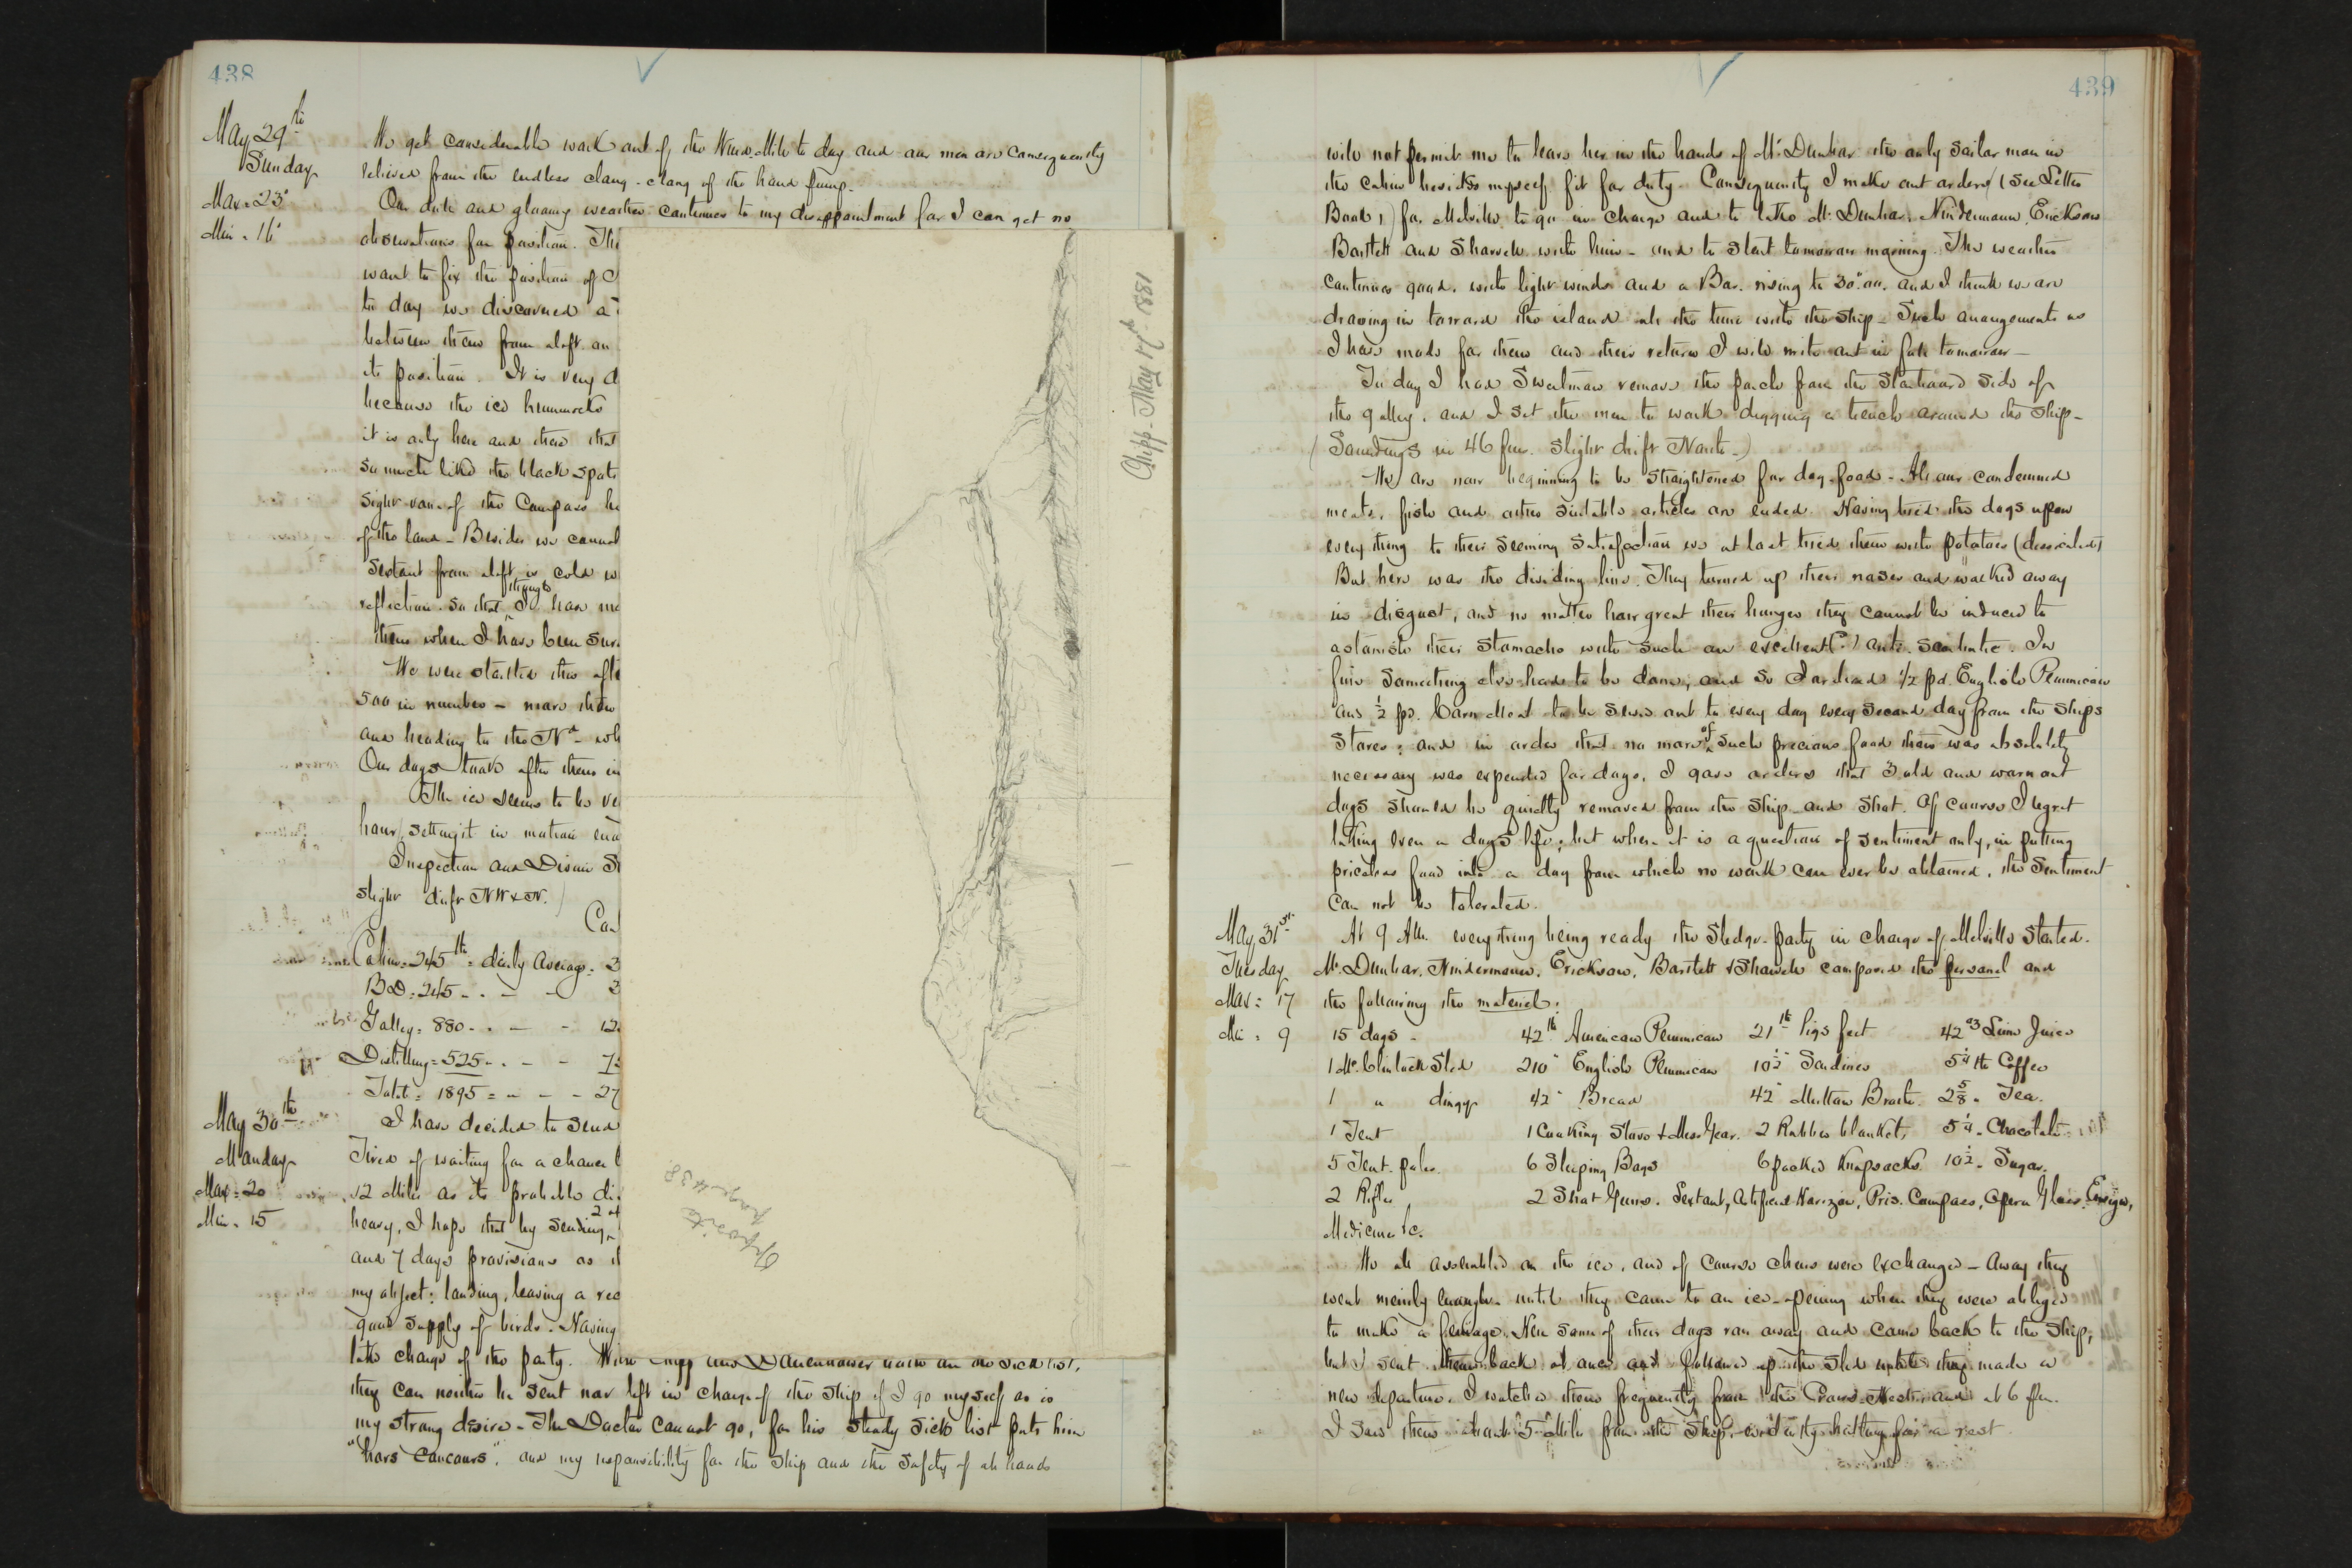 438
May 29th
Sunday
Max = 23°
Min = 16°
We get considerable work out of the Wind-Mill to day and our men are consequently
relieved from the endless clang-clang of the hand pump.
Our dull and gloomy weather continues to my disappointment for I can get no
observations for position. Thi
want to fix the position of
to day we discovered a
between them from aloft an
its position. It is very d
because the ice hummocks
it is only here and there that
so much like the black spots
sight vane of the Compass he
of the land - Besides we cannot
Sextant from aloft
reflection. So that though I have me
them when I have been sur
We were startled this afte
500 in number - more than
and heading to the Nd - wh
Our dogs took after them in
The ice seems to be ve
hour, setting it in motion eno
Inspection and Divine S
slight drift NW & N.)
Coa
Cabin = 245 lb = daily average = 3
BD = 245 - - - 2
Galley = 880 - - - 12
Distilling = 525 - - - 7
Total = 1895 = - - - 27
May 30th
Monday
Max = 20
Min = 15
I have decided to send
Tired of waiting for a chance
12 Miles as its probable di
heavy, I hope that by sending
and 7 days provisions as
my object: landing, leaving a rec
good supply of birds. Having
take charge of the party. With Chipp and Danenhower both on the sick list,
they can neither be sent nor left in charge of the ship if I go myself as is
my strong desire - The Doctor cannot go, for his steady sick list puts him
"hors concours", and my responsibility for the ship and the safety of all hands
Chipp - May 17th 1881
Opposite
page 438
439
will not permit me to leave her in the hands of Mr. Dunbar the only sailor man in
the cabin besides myself fit for duty. Consequently I make out orders (see Letter
Book 1) for Melville to go in charge and to take Mr. Dunbar, Nindemann, Erickson
Bartlett and Sharvell with him - and to start tomorrow morning. The weather
continues good, with light winds and a Bar. rising to 30".00. and I think we are
drawing in toward the island all the time with the ship - Such arrangements as
I have made for them and their return I will write out in full tomorrow -
To day I had Sweetman remove the porch from the starboard side of
the galley, and I set the men to work digging a trench around the ship -
(Soundings in 46 fms. Slight drift North -)
We are now beginning to be straightened for dog-food - All our condemned
meats, fish and other suitable articles are ended. Having tried the dogs upon
every thing to their seeming satisfaction we at last tried them with potatoes (dessicated)
But here was the dividing line. They turned up their noses and walked away
in disgust, and no matter how great their hunger they cannot be induced to
astonish their stomachs with such an excellent (?) anti-scorbutic. In
fine something else had to be done, and so I ordered 1/2 pd. English Pemmican
and 1/2 pd. Corn Meal to be served out to every dog every second day from the ships
Stores; and in order that no more of such precious food than was absolutely
necessary was expended for dogs, I gave orders that 3 old and worn out
dogs should be quietly removed from the ship and shot. Of course I regret
taking even a dog's life; but when it is a question of sentiment only, in putting
priceless food into a dog from which no work can ever be obtained, the sentiment
can not be tolerated.
May 31st
Tuesday
Max = 17
Min = 9
At 9 AM. everything being ready the Sledge-Party in charge of Melville started.
Mr. Dunbar, Nindemann, Erickson, Bartlett & Sharvell composed the personel and
the following the materiel:
15 dogs - 42 lb American Pemmican 21 lb Pigs feet 42 oz Lime Juice
1 Mc.Clintock Sled 210 " English Pemmican 10½ " Sardines 5¼ lb Coffee
1 " dingy 42 " Bread 42 " Mutton Broth 2⅝ " Tea.
1 Tent 1 Cooking Stove & Mess Gear. 2 Rubber blankets 5¼ " Chocolate
5 Tent-poles 6 Sleeping Bags 6 packed Knapsacks 10½ " Sugar.
2 Rifles 2 Shot Guns. Sextant, Artificial Horizon, Pris. Compass, Opera Glass. Ensign,
Medicine &c.
We all assembled on the ice, and of course cheers were exchanged - Away they
went merrily enough until they came to an ice-opening when they were obliged
to make a ferriage. Here some of their dogs ran away and came back to the ship,
but I sent them back at once and followed up the sled until they made a
new departure. I watched them frequently from the Crows-Nest, and at 6 pm.
I saw them about 5 Miles from the ship, evidently halting for a rest